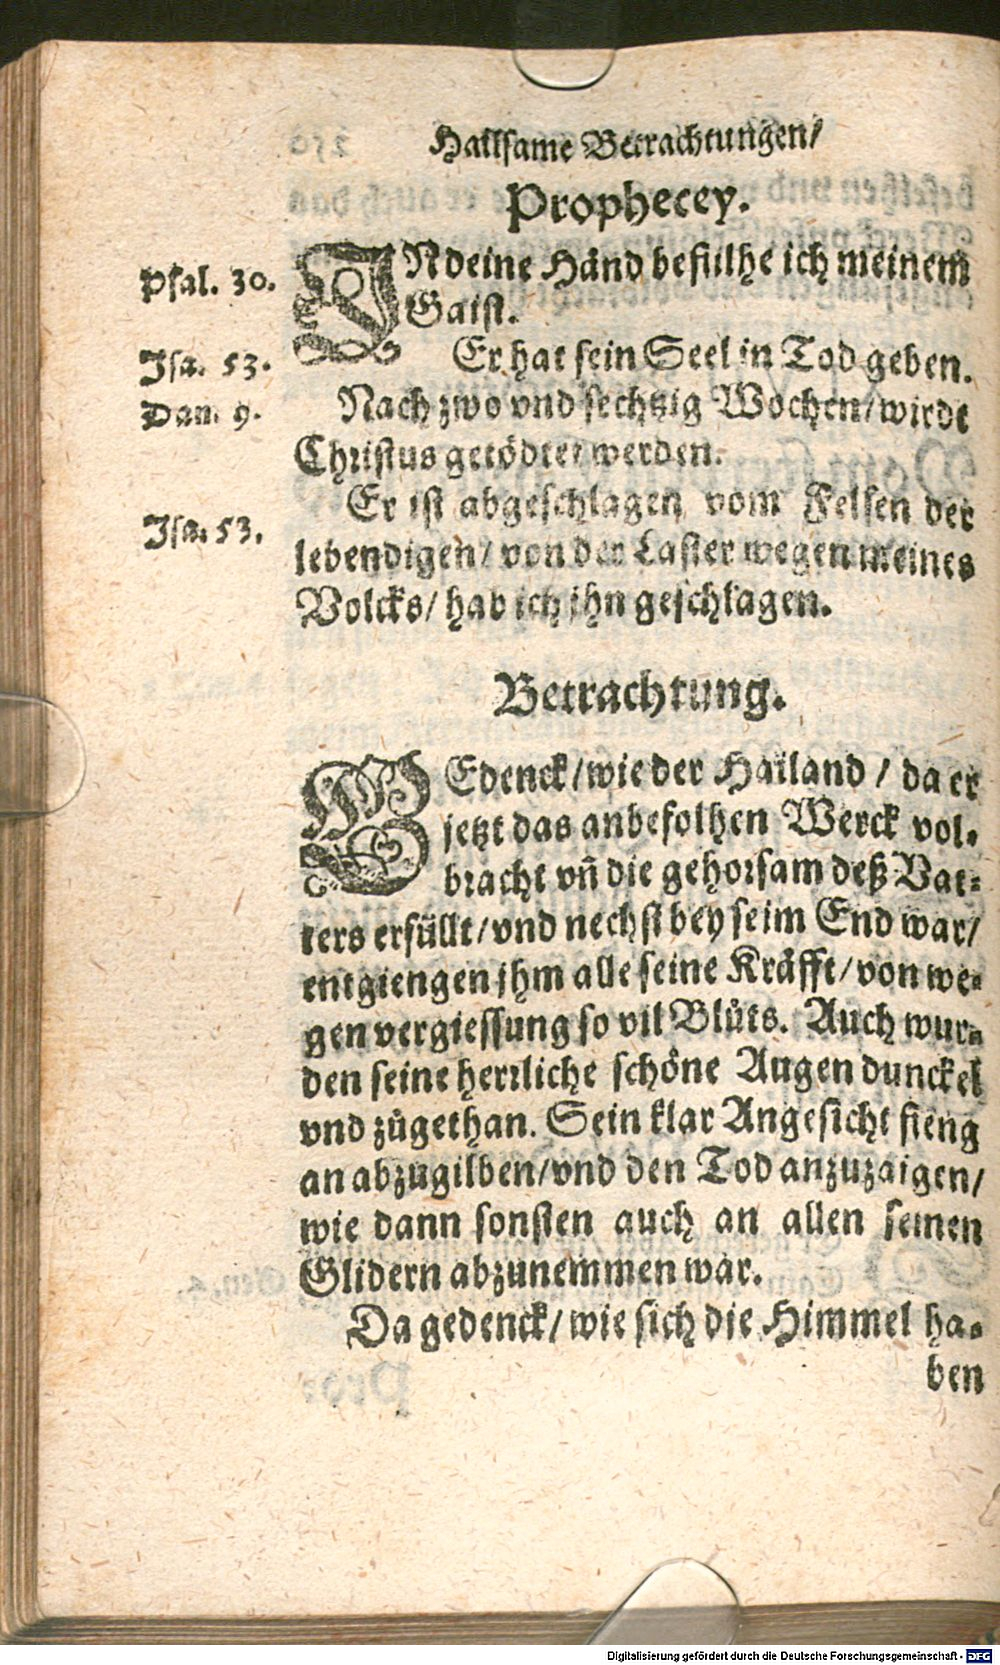 Hailsame Betrachtungen/
Prophecey.
Psal. 30.
IN deine Händ befulhe ich meinem
Gaist.
Isa. 53.
Er hat sein Seel in Tod geben.
Dan. 9.
Nach zwo vnd sechtzig Wochen/ wirdt
Christus getödtet werden.
Isa. 53.
Er ist abgeschlagen vom Felsen der
lebendigen/ von der Laster wegen meines
Volcks/ hab ich jhn geschlagen.
Betrachtung.
GEdenck/ wie der Hailand / da er
jetzt das anbefolhen Werck vol-
bracht vn̄ die gehorsam deß Vat-
ters erfüllt/ vnd nechst bey seim End war/
entgiengen jhm alle seine Kräfft/ von we-
gen vergiessung so vil Blůts. Auch wur-
den seine herrliche schöne Augen dunckel
vnd zůgethan. Sein klar Angesicht fieng
an abzugilben/ vnd den Tod anzuzaigen/
wie dann sonsten auch an allen seinen
Glidern abzunemmen war.
Da gedenck/ wie sich die Himmel ha-
ben
Digitalisierung gefördert durch die Deutsche Forschungsgemeinschaft - DFG